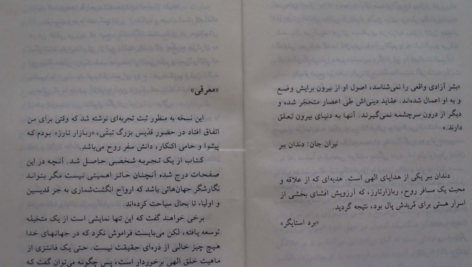 «معرفی»
این نسخه به منظور ثبت تجربه‌ای نوشته شد که وقتی برای من
اتفاق افتاد در حضور قدیس بزرگ تبتی، «ربازار تارز» بودم که
پیشوا و حامی اکنکار، دانش سفر روح می‌باشد.
کتاب از یک تجربه شخصی حاصل شد. آنچه در این
صفحات درج شده آنچنان حائز اهمیتی نیست مگر بتواند
نگارشگر جهان‌هائی باشد که ارواح انگشت‌شماری به جز قدیسین
و اولیاء، تا بحال سیاحت کرده‌اند.
برخی خواهند گفت که این تنها نمایشی است از یک متخیله
توسعه یافته، لکن می‌بایست فراموش نکرد که در جهانهای خدا
هیچ چیز خالی از ذره‌ای حقیقت نیست. حتی یک فانتزی از
ماهیت خلق الهی برخوردار است، پس چگونه می‌توان گفت که
«بشر آزادی واقعی را نمی‌شناسد، اصول او از بیرون برایش وضع
و به او اعمال شده‌اند. عقاید دینی‌اش طی اعصار متحجر شده و
دیگر از درون سرچشمه نمی‌گیرند. آنها به دنیای بیرون تعلق
دارند.»
دندان ببر
دندان ببر یکی از هدایای الهی است. هدیه‌ای که از علاقه و
محبت یک مسافر روح، ربازارتارز، که آرزویش افشای بخشی از
اسرار هستی برای مریدش پال بود، نتیجه گردید.
«برد استایگر»